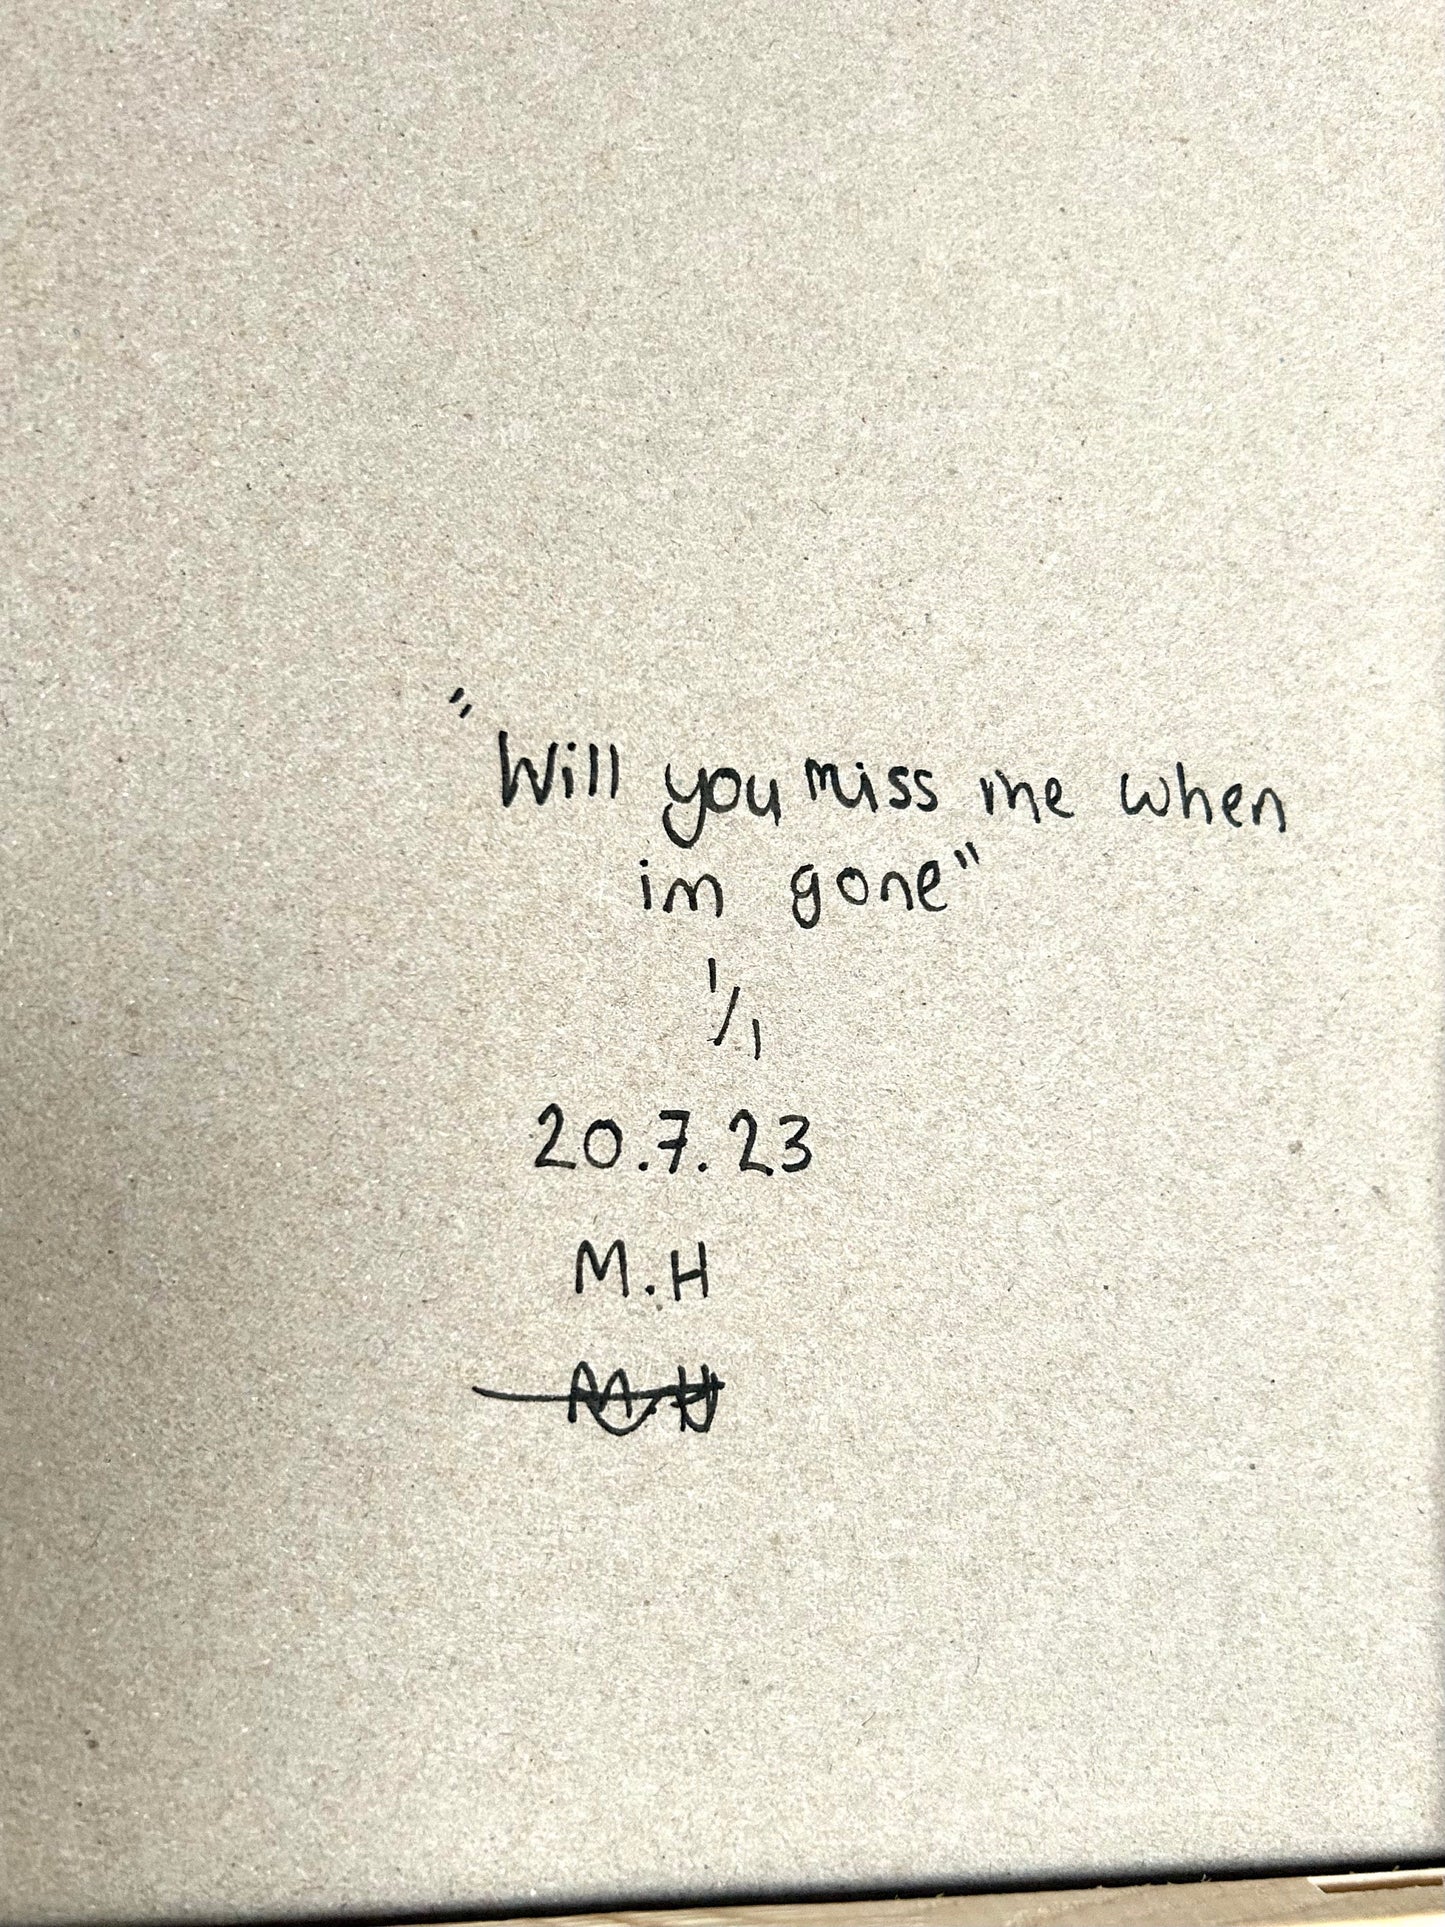 "Will you miss me when
im gone"
1/1
20.7.23
M.H
M.H